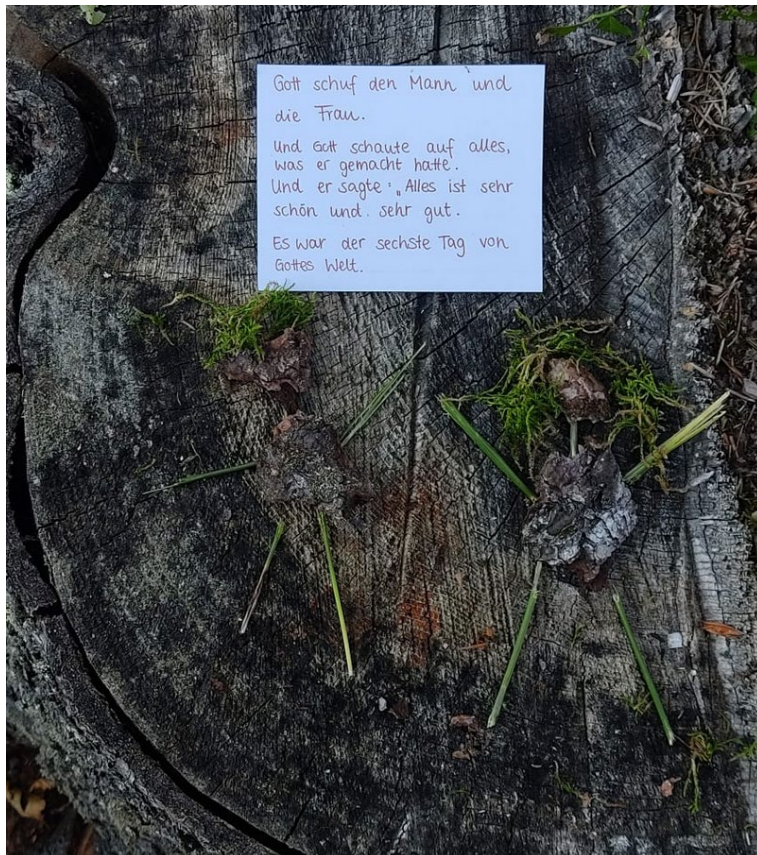 Gott schuf den Mann und
die Frau.
Und Gott schaute auf alles,
was er gemacht hatte.
Und er sagte: „Alles ist sehr
schön und sehr gut.
Es war der sechste Tag von
Gottes Welt.